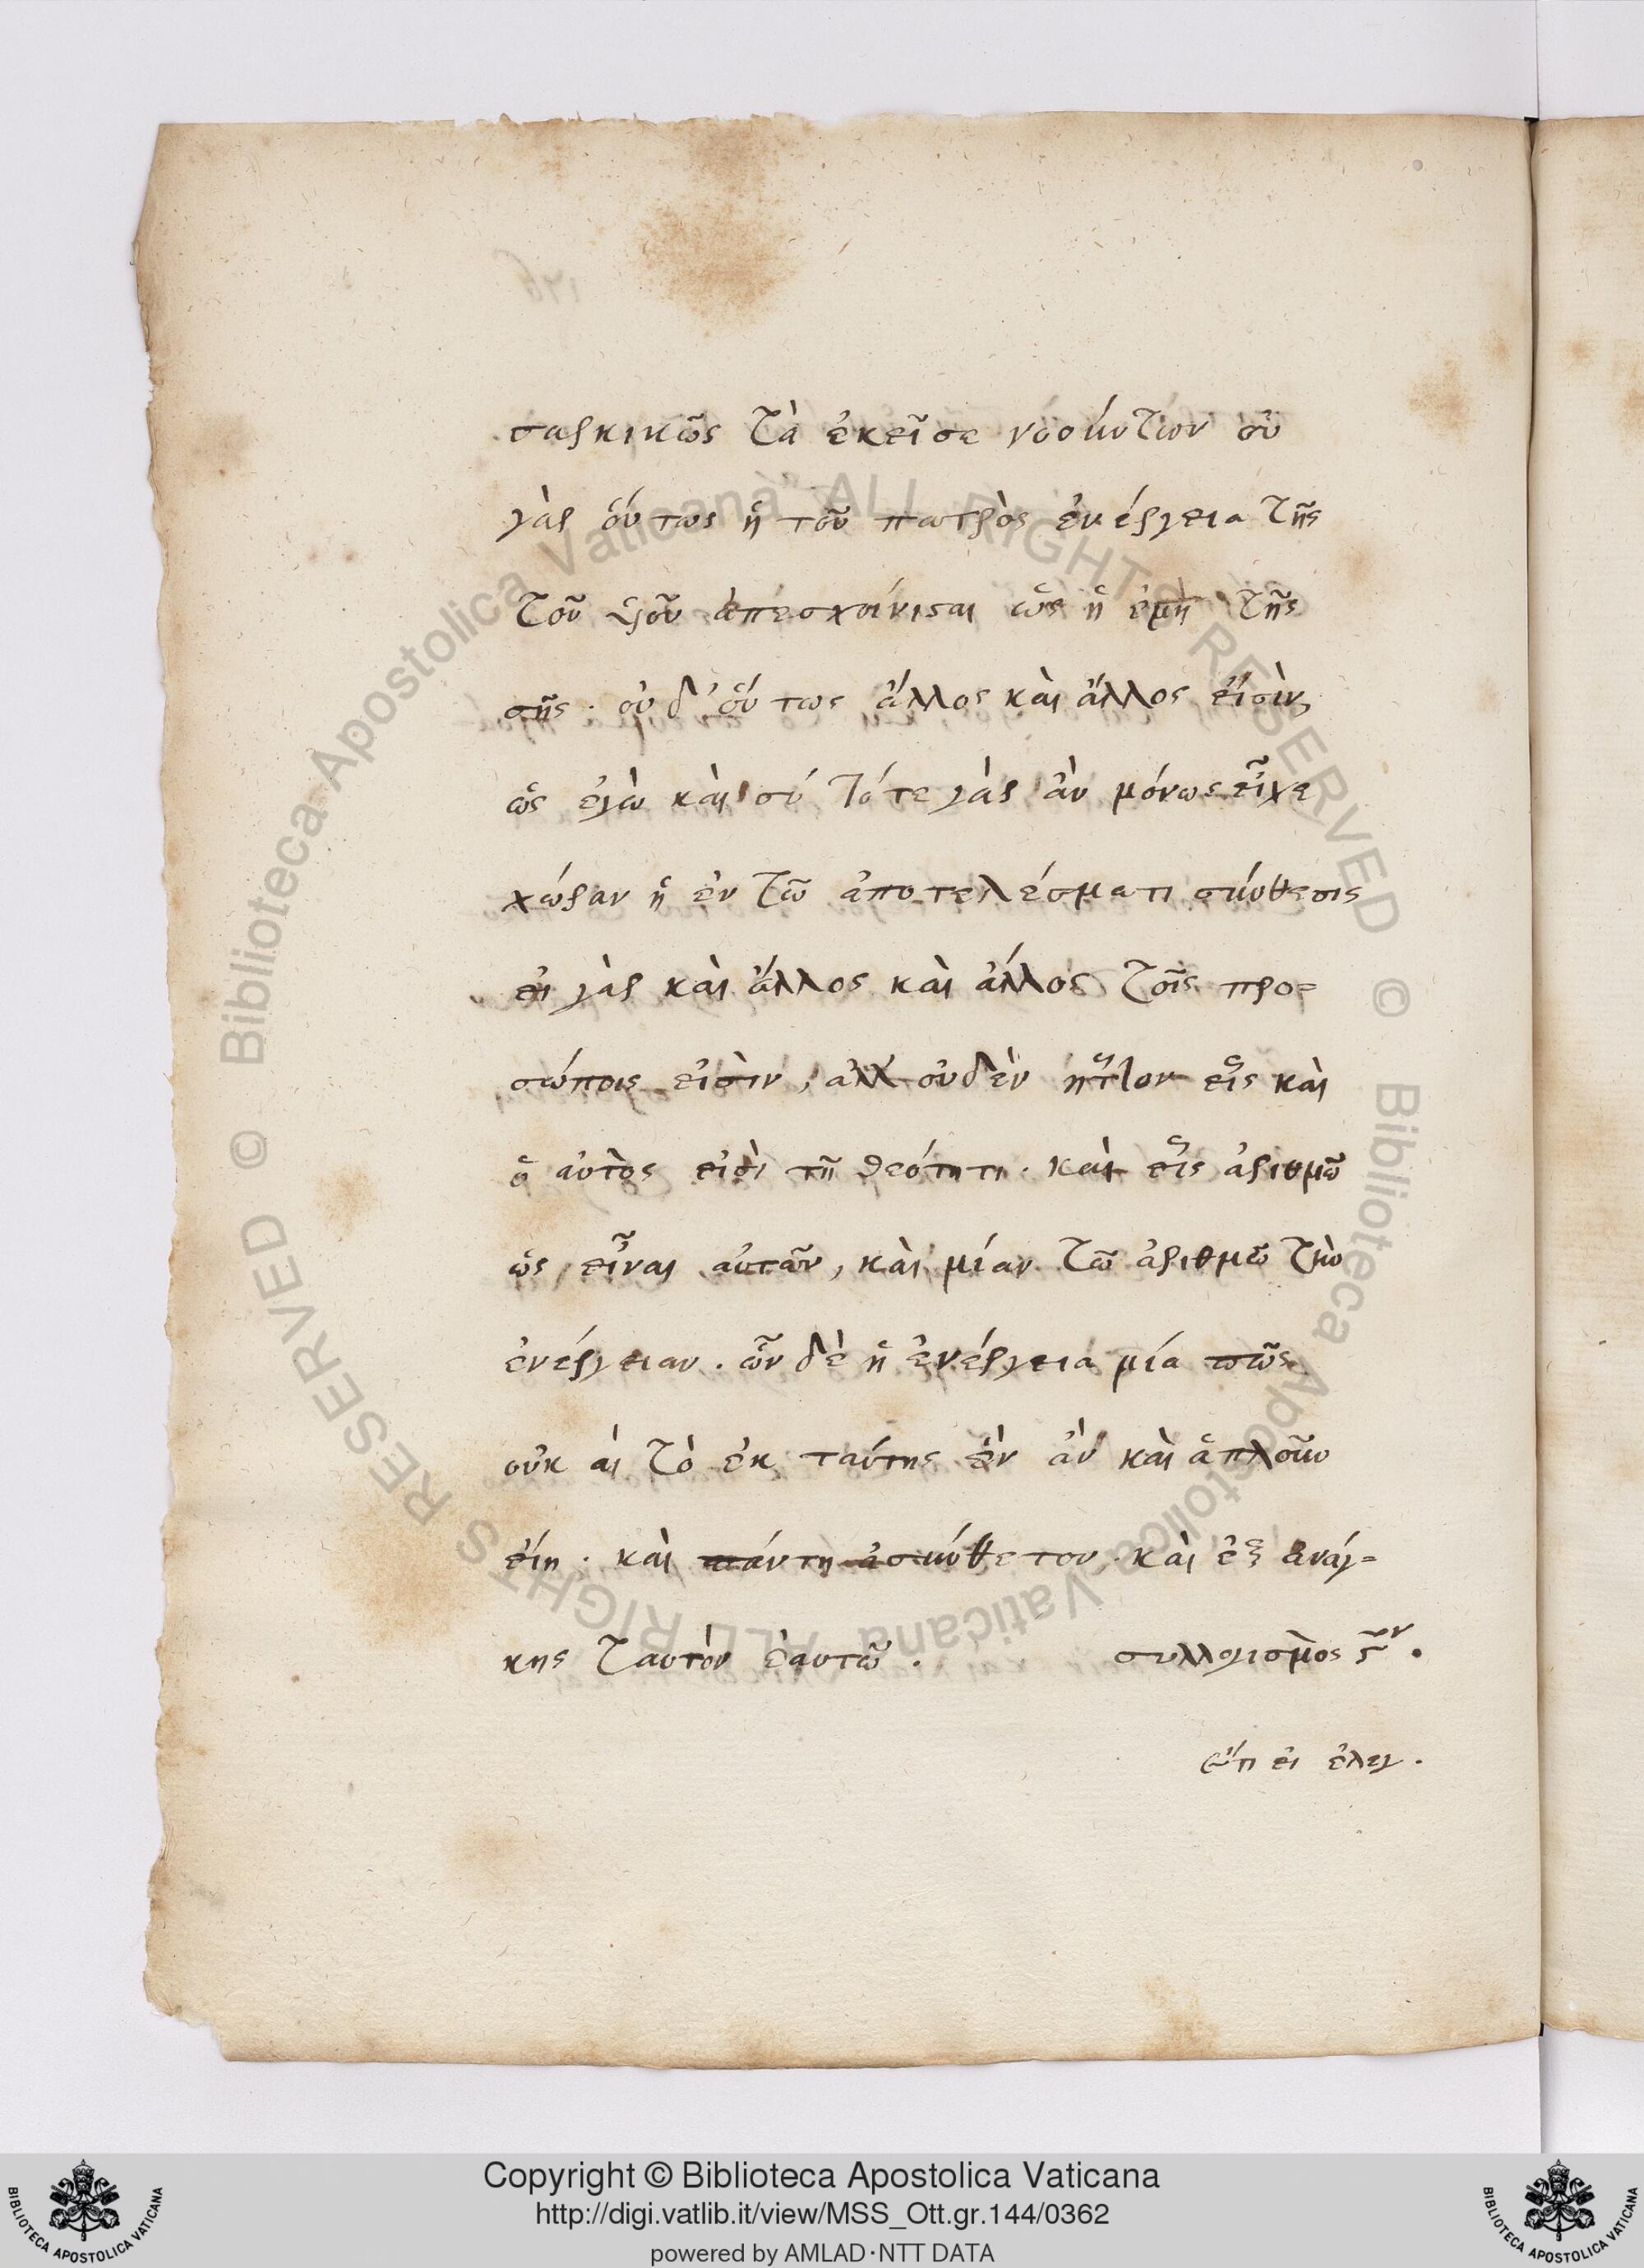 σαρκικῶς τὰ ἐκεῖσε νοούντων οὐ
γὰρ οὕτως ἡ τοῦ πατρὸς ἐνέργεια τῆς
τοῦ ὑιοῦ ἀπεσχοίνισται ὡς ἡ ἐμὴ τῆς
σῆς. οὐδ᾽ οὕτως ἄλλος καὶ ἄλλος εἴσὶν,
ὡς ἐγὼ καὶ σύ τότε γὰρ ἂν μόνως εἶχε
χώραν ἡ ἐν τῶ ἀποτελέσματι σύνθεσις
εἰ γὰρ καὶ ἄλλος καὶ ἄλλος τοῖς προ=
σώποις εἰσὶν, ἀλλ᾽ οὐδὲν ἧττον εἷς καὶ
ὁ αὐτὸς εἰσὶ τῆ θεότητι. καὶ εἷς ἀριθμῶ
ὡς εἶναι αὐτῶν, καὶ μίαν τῶ ἀριθμῶ τὴν
ἐνέργειαν. ὧν δὲ ἡ ἐνέργεια μία πῶς
οὐκ αἰ τὸ ἐκ ταύτης ἓν ἂν καὶ ἁπλοῦν
εἴη. καὶ πάντη ἀσύνθετον. καὶ ἐξ ἀνάγ=
κης ταυτὸν ἑαυτῶ. συλλογισμὸς ϛ̅ον.
ἔτι εἰ ἐλεγ.
Copyright © Biblioteca Apostolica Vaticana
http://digi.vatlib.it/view/MSS_Ott.gr.144/0362
powered by AMLAD·NTT DATA
BIBLIOTECA APOSTOLICA VATICANA
BIBLIOTECA APOSTOLICA VATICANA
© Biblioteca Apostolica Vaticana ALL RIGHTS RESERVED © Biblioteca Apostolica Vaticana ALL RIGHTS RESERVED